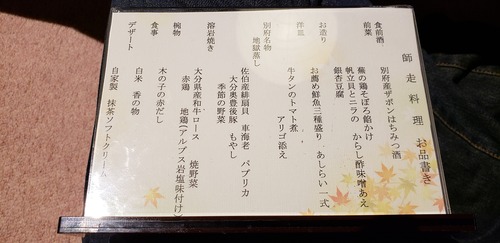 師走料理 お品書き
食前酒 別府産ザボンはちみつ酒
前菜 蕪の鶏そぼろ餡かけ
帆立貝とニラの からし酢味噌あえ
銀杏豆腐
お造り お薦め鮮魚三種盛り あしらい一式
洋皿 牛タンのトマト煮 アリゴ添え
別府名物
地獄蒸し 佐伯産緋扇貝 車海老 パプリカ
大分奥豊後豚 もやし
季節の野菜
溶岩焼き 大分県産和牛ロース 焼野菜
赤鶏 地鶏(アルプス岩塩味付け)
椀物 木の子の赤だし
食事 白米 香の物
デザート 自家製 抹茶ソフトクリーム